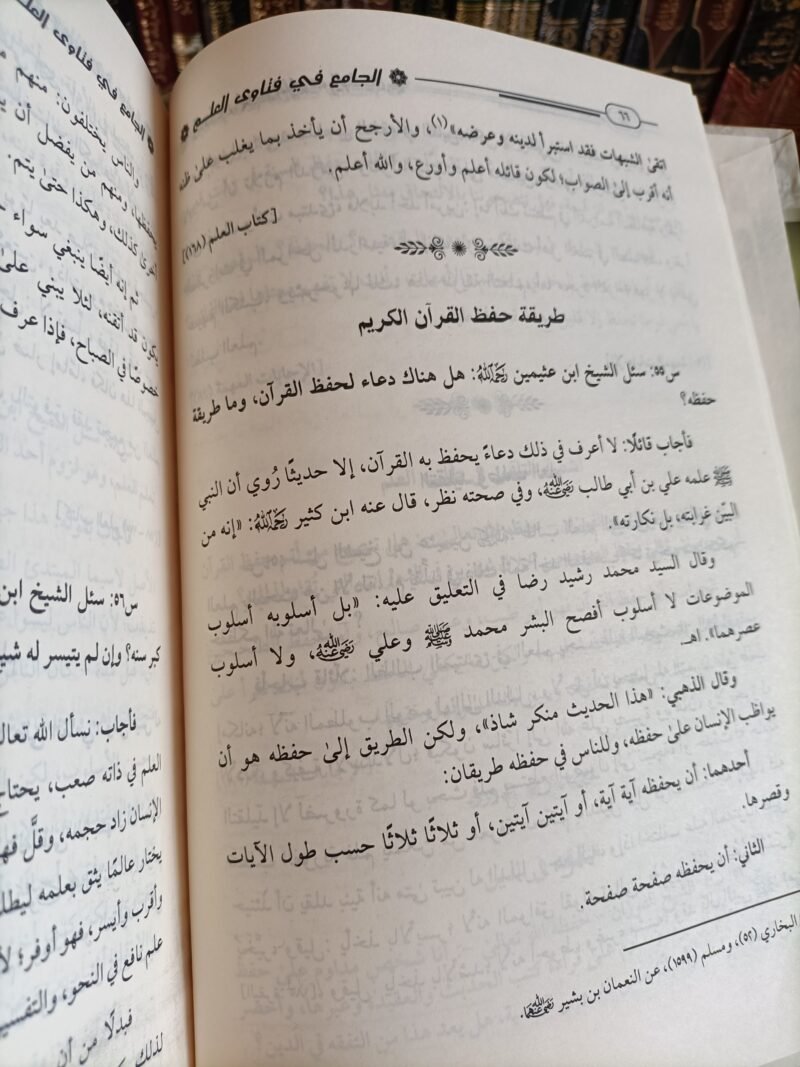 ٦٦
الجامع في فتاوى العلم
اتقى الشبهات فقد استبرأ لدينه وعرضه»(١)، والأرجح أن يأخذ بما يغلب على ظنه
أنه أقرب إلى الصواب؛ لكون قائله أعلم وأورع، والله أعلم.
[كتاب العلم (١٦٨)]
طريقة حفظ القرآن الكريم
س٥٥: سئل الشيخ ابن عثيمين رَحِمَهُ اللَّهُ: هل هناك دعاء لحفظ القرآن، وما طريقة
حفظه؟
فأجاب قائلًا: لا أعرف في ذلك دعاءً يحفظ به القرآن، إلا حديثًا رُوي أن النبي
ﷺ علمه علي بن أبي طالب رَضِيَ اللَّهُ عَنْهُ، وفي صحته نظر، قال عنه ابن كثير رَحِمَهُ اللَّهُ: «إنه من
البيّن غرابته، بل نكارته».
وقال السيد محمد رشيد رضا في التعليق عليه: «بل أسلوبه أسلوب
الموضوعات لا أسلوب أفصح البشر محمد ﷺ وعلي رَضِيَ اللَّهُ عَنْهُ، ولا أسلوب
عصرهما». اهـ.
وقال الذهبي: «هذا الحديث منكر شاذ»، ولكن الطريق إلى حفظه هو أن
يواظب الإنسان على حفظه، وللناس في حفظه طريقان:
أحدهما: أن يحفظه آية آية، أو آيتين آيتين، أو ثلاثًا ثلاثًا حسب طول الآيات
وقصرها.
الثاني: أن يحفظه صفحة صفحة.
البخاري (٥٢)، ومسلم (١٥٩٩)، عن النعمان بن بشير رَضِيَ اللَّهُ عَنْهُمَا.
الجامع في فتاوى العلم
والناس يختلفون: منهم
يحفظها، ومنهم من يفضل أن
أخرى كذلك، وهكذا حتى يتم.
ثم إنه أيضًا ينبغي سواء
يكون قد أتقنه، لئلا يبني على
خصوصًا في الصباح، فإذا عرف
س٥٦: سئل الشيخ ابن
كبر سنه؟ وإن لم يتيسر له
فأجاب: نسأل الله
العلم في ذاته صعب، يحتاج
الإنسان زاد حجمه، وقلَّ
يختار عالمًا يثق بعلمه
وأقرب وأيسر، فهو أوفر؛
علم نافع في النحو، والتفسير
فبدلًا من أن
لذلك